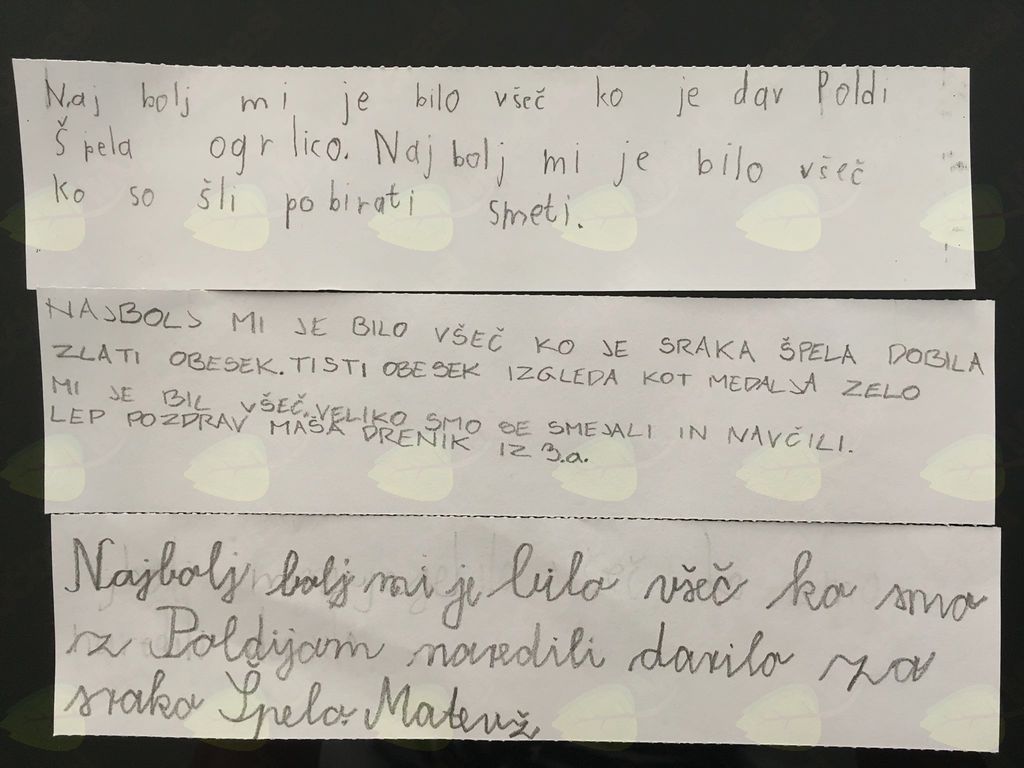 Naj bolj mi je bilo všeč ko je dav Poldi
Špela ogrlico. Naj bolj mi je bilo všeč
ko so šli pobirati smeti.
NAJBOLJ MI JE BILO VŠEČ KO JE SRAKA ŠPELA DOBILA
ZLATI OBESEK. TISTI OBESEK IZGLEDA KOT MEDALJA ZELO
MI JE BIL VŠEČ. VELIKO SMO SE SMEJALI IN NAVČILI.
LEP POZDRAV MAŠA DRENIK IZ 3.a.
Najbolj bolj mi je bilo všeč ko smo
iz Poldijam naredili darilo za
srako Špelo. Matevž